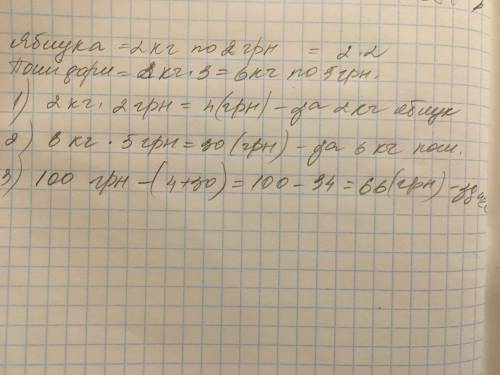 Яблука = 2 кг по 2 грн = 2 · 2
Помидори = 2 кг · 3 = 6 кг по 5 грн.
1) 2 кг · 2 грн = 4 (грн) – за 2 кг яблук
2) 6 кг · 5 грн = 30 (грн) – за 6 кг пом.
3) 100 грн – (4+30) = 100 – 34 = 66 (грн) –